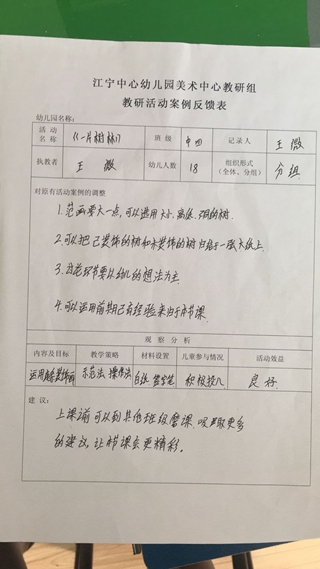 江宁中心幼儿园美术中心教研组
教研活动案例反馈表
幼儿园名称:
活动名称 《一片树林》 班级 中四 记录人 王微
执教者 王微 幼儿人数 18 组织形式(全体、分组) 分组
对原有活动案例的调整
1.范画要大一点,可以选用大小、高低、强的树.
2.可以把已装饰的树和未装饰的树自于一张大纸上.
3.环节要以幼儿的想法为主.
4.可以运用前期已有经验来由于本节课.
观察分析
内容及目标 教学策略 材料设置 儿童参与情况 活动效益
运用 装饰画 示范法、操作法 白纸 积极投入 良好.
建议:
上课前可以到其他班级磨课.吸取更多
的建议,让本节课会更精彩.